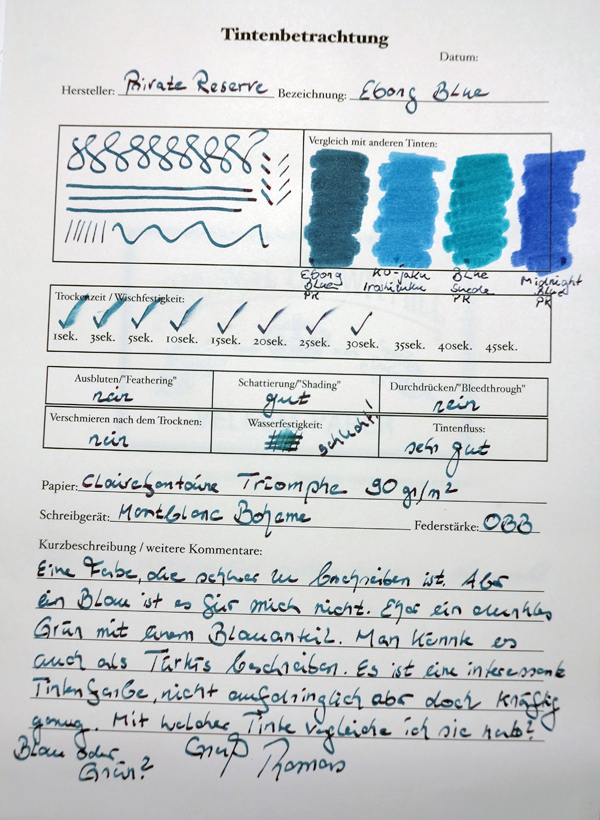 Tintenbetrachtung
Datum:
Hersteller: Private Reserve Bezeichnung: Ebony Blue
Vergleich mit anderen Tinten:
Ebony Blue PR
Ku-jaku Iroshizuku
Blue Suede PR
Midnight Blues PR
Trockenzeit / Wischfestigkeit:
1sek. 3sek. 5sek. 10sek. 15sek. 20sek. 25sek. 30sek. 35sek. 40sek. 45sek.
Ausbluten/"Feathering" Schattierung/"Shading" Durchdrücken/"Bleedthrough"
nein gut nein
Verschmieren nach dem Trocknen: Wasserfestigkeit: Tintenfluss:
nein schlecht! sehr gut
Papier: Clairefontaine Triomphe 90 gr/m²
Schreibgerät: Montblanc Boheme Federstärke: OBB
Kurzbeschreibung / weitere Kommentare:
Eine Farbe, die schwer zu beschreiben ist. Aber
ein Blau ist es für mich nicht. Eher ein dunkles
Grün mit einem Blauanteil. Man könnte es
auch als Türkis beschreiben. Es ist eine interessante
Tintenfarbe, nicht aufdringlich aber doch kräftig
genug. Mit welcher Tinte vergleiche ich sie
Blau oder Gruß
Grün? Thomas